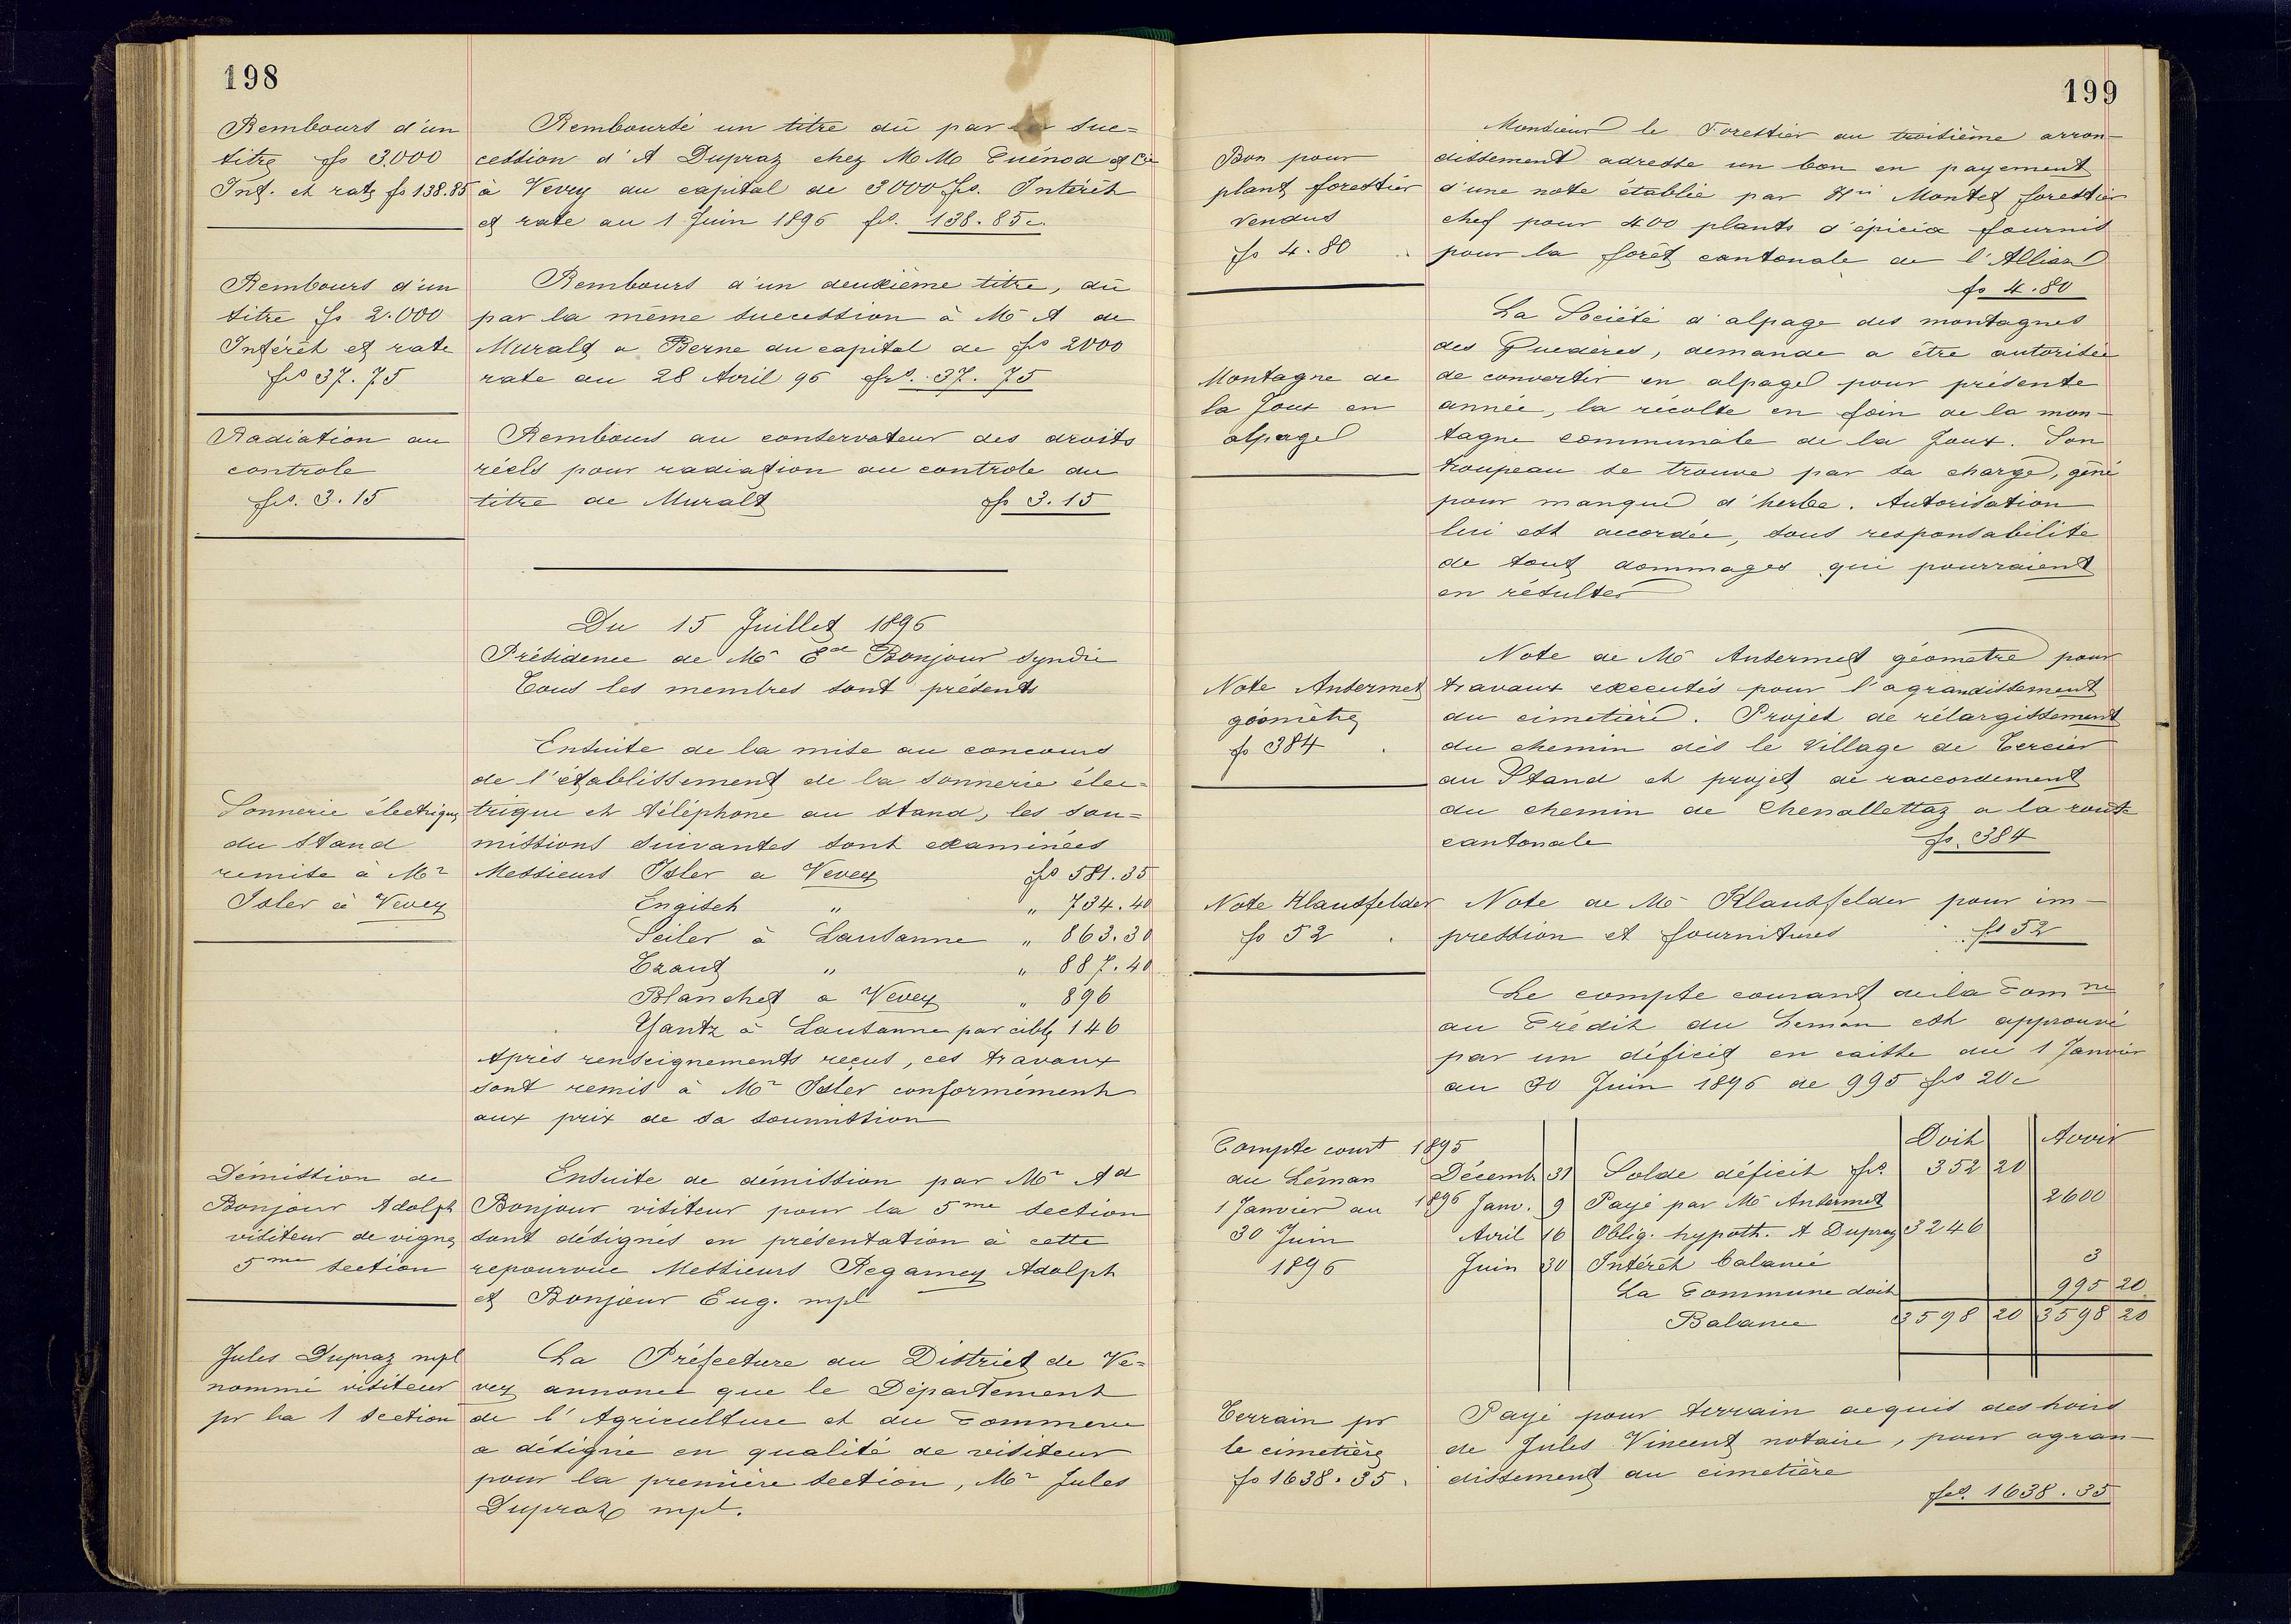 198
Rembours d'un
titre fs 3.000
Int. et rate fs 138.85
Remboursé un titre dû par la suc=
cession d'A Dupraz chez M M Cuénod & Cie
à Vevey du capital de 3000 fs. Intérêt
et rate au 1 Juin 1896 fs. 138.85 c.
Rembours d'un
titre fs 2.000
Intérêt et rate
frs 37.75
Rembours d'un deuxième titre, dû
par la même succession à Mr A de
Muralt a Berne du capital de frs 2000
rate au 28 Avril 96 frs. 37.75
Radiation au
controle
frs. 3.15
Rembours au conservateur des droits
réels pour radiation au controle du
titre de Muralt fs 3.15
Du 15 Juillet 1896
Présidence de Mr Ed Bonjour syndic
Tous les membres sont présents
Sonnerie électrique
du stand
remise à Mr
Isler à Vevey
Ensuite de la mise au concours
de l'établissement de la sonnerie élec=
trique et téléphone au stand, les sou=
missions suivantes sont examinées
Messieurs Isler a Vevey frs 581.35
Engisch " " 734.40
Seiler à Lausanne " 863.30
Traut " " 887.40
Blanchet a Vevey " 896
Yantz à Lausanne par cible 146
Après renseignements reçus, ces travaux
sont remis à Mr Isler conformément
aux prix de sa soumission
Démission de
Bonjour Adolph
visiteur de vignes
5me section
Ensuite de démission par Mr Ad
Bonjour visiteur pour la 5me section
sont désignés en présentation à cette
repourvue Messieurs Regamey Adolph
et Bonjour Eug. mpl
Jules Dupraz mpl
nommé visiteur
pr la 1 section
La Préfecture du District de Ve=
vey annonce que le Département
de l'Agriculture et du Commerce
a désigné en qualité de visiteur
pour la première section, Mr Jules
Dupraz mpl.
199
Bon pour
plants forestier
vendus
fs 4.80
Monsieur le Forestier du troisième arron-
dissement adresse un bon en payement
d'une note établie par Hri Montet forestier
chef pour 400 plants d'épicéa fournis
pour la forêt cantonale de l'Alliaz
fs 4.80
Montagne de
la Joux en
alpage
La Société d'alpage des montagnes
des Guedères, demande a être autorisée
de convertir en alpage pour présente
année, la récolte en foin de la mon-
tagne communale de la Joux. Son
troupeau se trouve par sa charge, gêné
pour manque d'herbe. Autorisation
lui est accordée, sous responsabilité
de tout dommages qui pourraient
en résulter
Note Ansermet
géomètre
fs 384
Note de Mr Ansermet géometre pour
travaux executés pour l'agrandissement
du cimetière. Projet de rélargissement
du chemin dès le Village de Tercier
au Stand et projet de raccordement
du chemin de Chenallettaz a la route
cantonale fs. 384
Note Klausfelder
fs 52
Note de Mr Klausfelder pour im-
pression et fournitures fs 52
Le compte courant de la Comne
au Crédit du Leman est approuvé
par un déficit en caisse du 1 Janvier
au 30 Juin 1896 de 995 frs 20 c
Compte court
du Léman
1 Janvier au
30 Juin
1896
1895 Doit Avoir
Décemb. 31 Solde déficit frs. 352 20
1896 Janv. 9 Payé par Mr Ansermet 2600
Avril 16 Oblig. hypoth. A Dupraz 3246
Juin 30 Intérêt balancé 3
La Commune doit 995 20
Balance 3598 20 3598 20
Terrain pr
le cimetière
fs 1638.35
Payé pour terrain acquis des hoirs
de Jules Vincent notaire, pour agran-
dissement du cimetière
frs. 1638.35